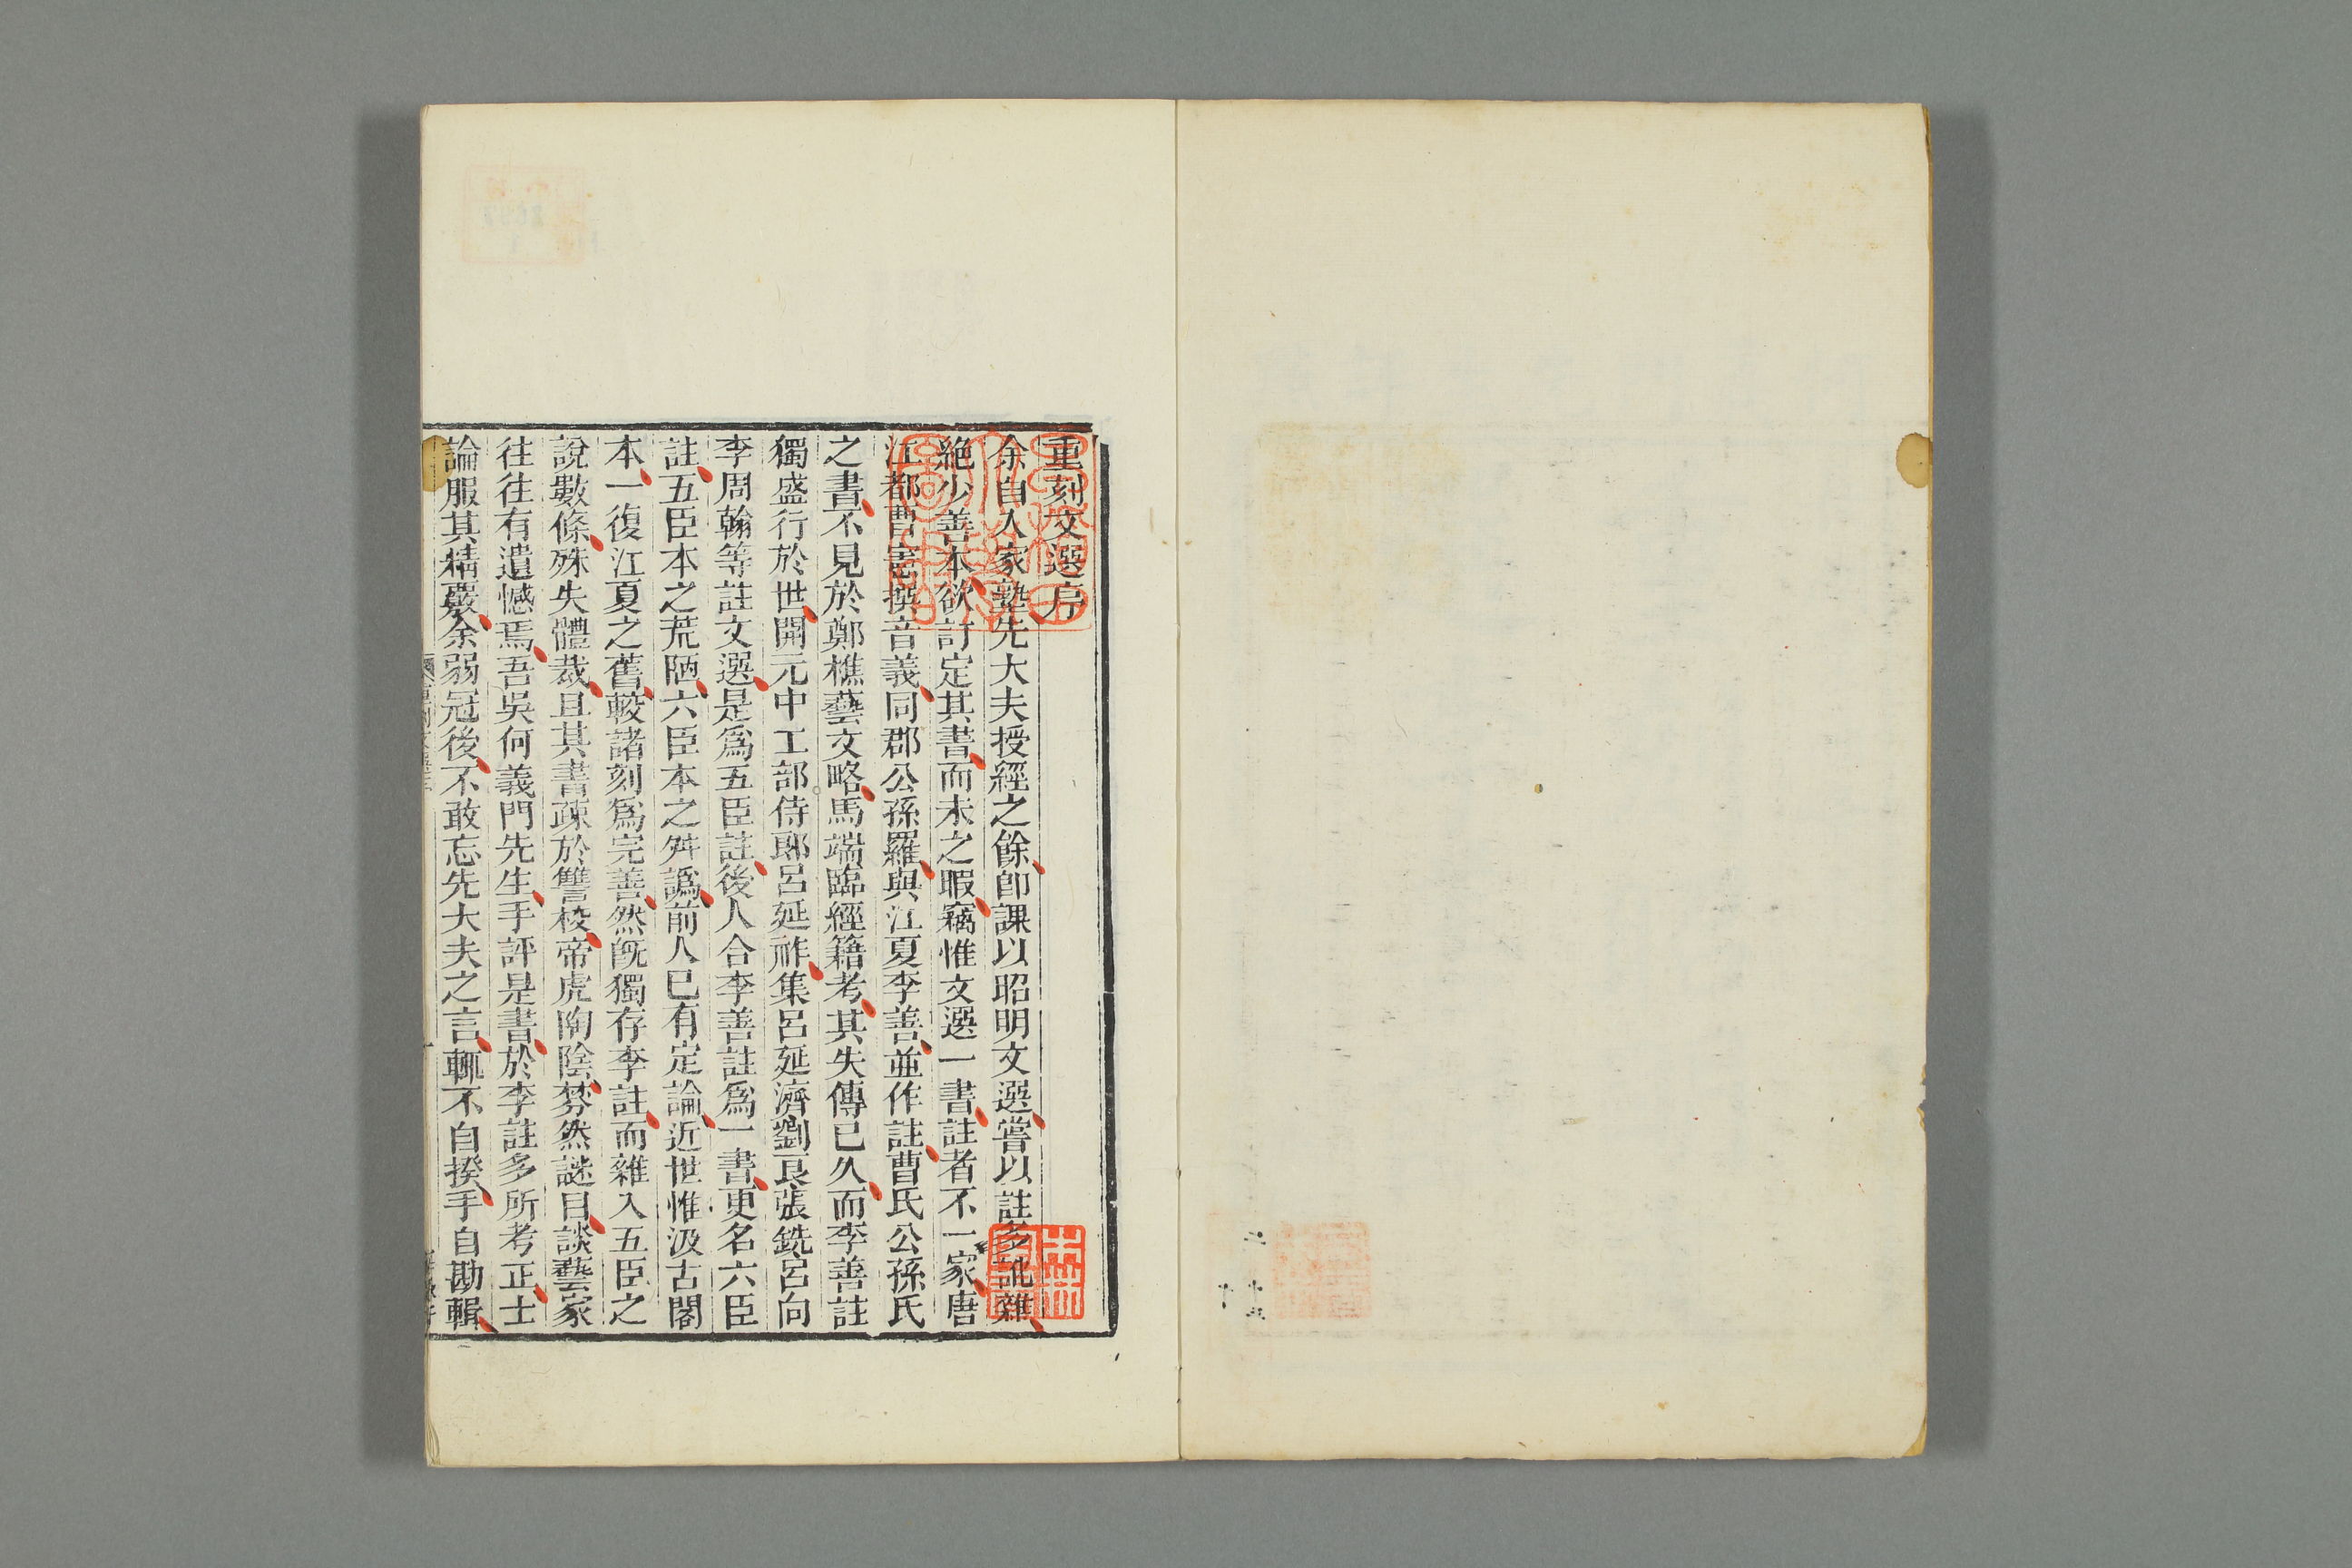 重刻文選序
余自入家塾先大夫授經之餘卽課以昭明文選嘗以註多訛雜
絶少善本欲訂定其書而未之暇竊惟文選一書註者不一家唐
江都曹憲撰音義同郡公孫羅與江夏李善並作註曹氏公孫氏
之書不見於鄭樵藝文略馬端臨經籍考其失傳已久而李善註
獨盛行於世開元中工部侍郞呂延祚集呂延濟劉良張銑呂向
李周翰等註文選是爲五臣註後人合李善註爲一書更名六臣
註五臣本之荒陋六臣本之舛譌前人已有定論近世惟汲古閣
本一復江夏之舊較諸刻爲完善然旣獨存李註而雜入五臣之
說數條殊失體裁且其書疎於讐校帝虎陶陰棼然謎目談藝家
往往有遺憾焉吾吳何義門先生手評是書於李註多所考正士
論服其精覈余弱冠後不敢忘先大夫之言輒不自揆手自勘輯